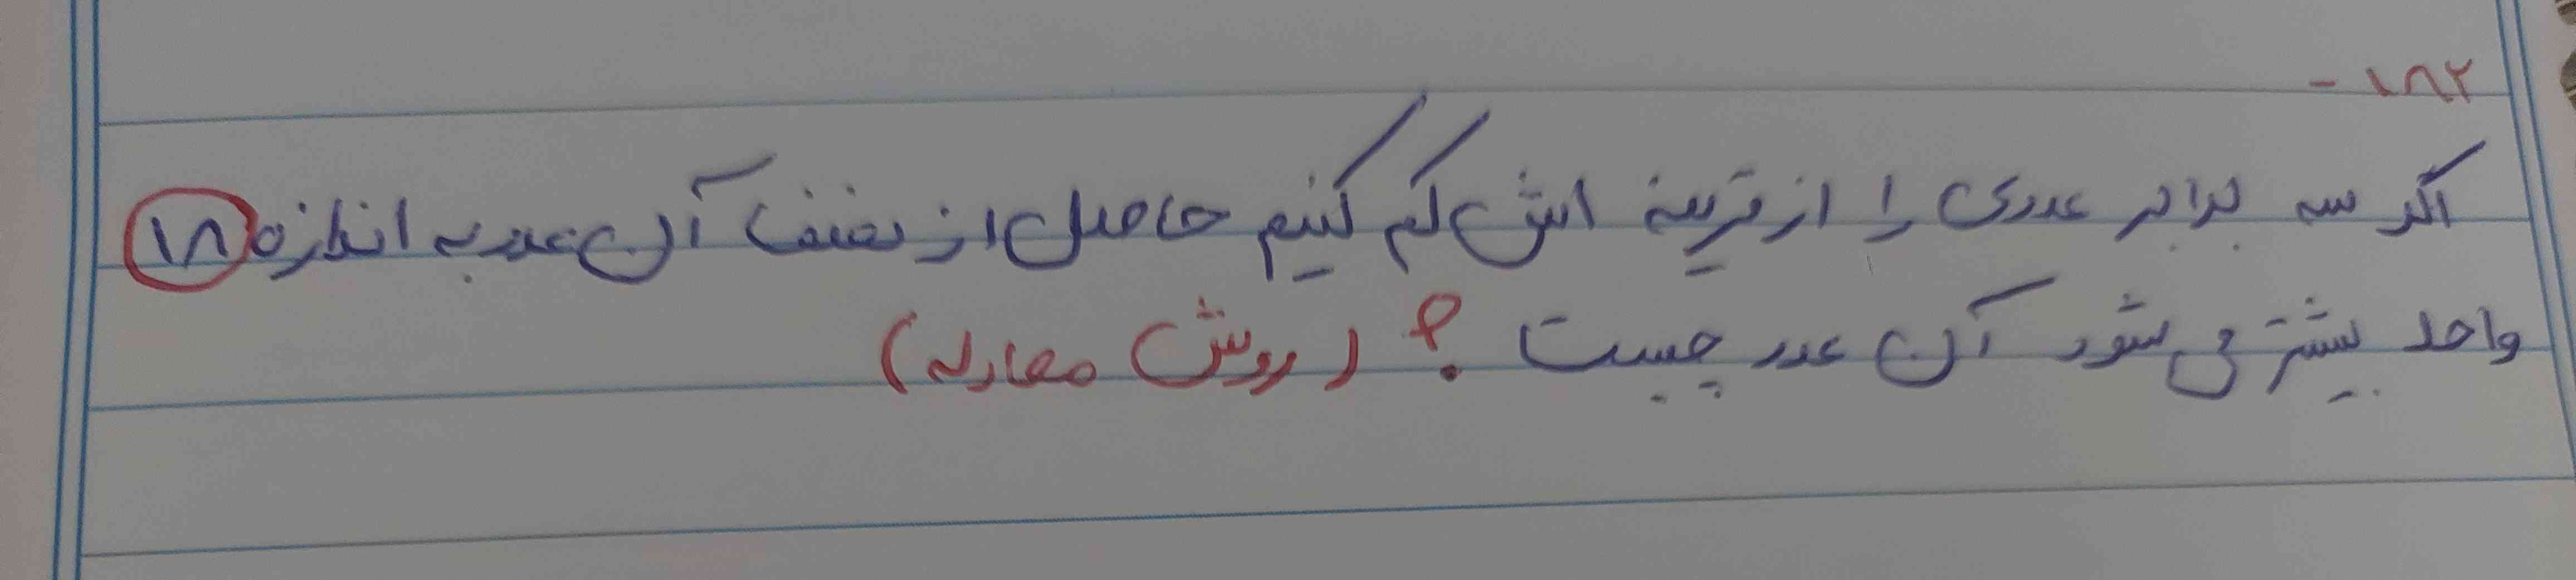 ۱۸۲ -
اگر سه برابر عددی را از قرینه اش کم کنیم حاصل از نصف آن عدد به اندازه ۱۸
واحد بیشتر می شود آن عدد چیست ؟ (روش معادله)